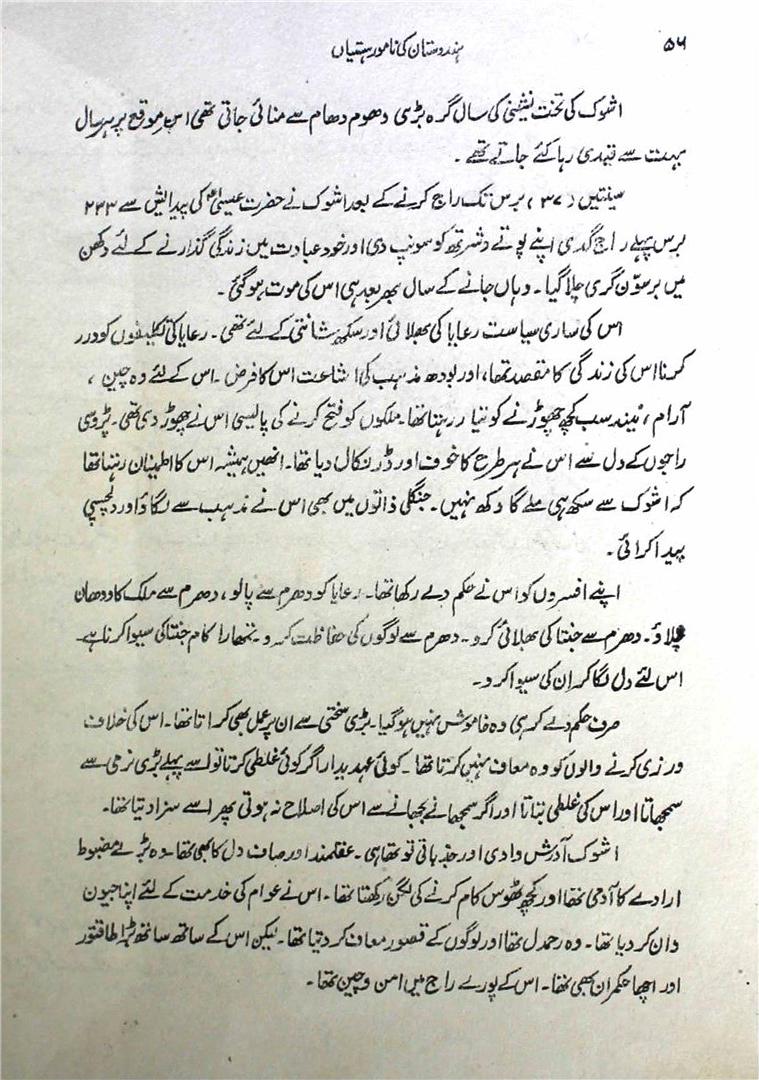 ۵۶
ہندوستان کی نامور ہستیاں
اشوک کی تخت نشینی کی سال گرہ بڑی دھوم دھام سے منائی جاتی تھی اس موقع پر ہر سال
بہت سے قیدی رہا کئے جاتے تھے۔
سینتیس (۳۷) برس تک راج کرنے کے بعد اشوک نے حضرت عیسیٰؑ کی پیدائش سے ۲۳۳
برس پہلے راج گدی اپنے پوتے دشرتھ کو سونپ دی اور خود عبادت میں زندگی گذارنے کے لئے دکھن
میں برسوّن گری چلا گیا۔ وہاں جانے کے سال بھر بعد ہی اس کی موت ہو گئی۔
اس کی ساری سیاست رعایا کی بھلائی اور سکھ شانتی کے لئے تھی۔ رعایا کی تکلیفوں کو دور
کرنا اس کی زندگی کا مقصد تھا، اور بودھ مذہب کی اشاعت اس کا فرض۔ اس کے لئے وہ چین،
آرام، نیند سب کچھ چھوڑنے کو تیار رہتا تھا۔ ملکوں کو فتح کرنے کی پالیسی اس نے چھوڑ دی تھی۔ پڑوسی
راجوں کے دل سے اس نے ہر طرح کا خوف اور ڈر نکال دیا تھا۔ انھیں ہمیشہ اس کا اطمینان رہتا تھا
کہ اشوک سے سکھ ہی ملے گا دکھ نہیں۔ جنگلی ذاتوں میں بھی اس نے مذہب سے لگاؤ اور دلچسپی
پیدا کرائی۔
اپنے افسروں کو اس نے حکم دے رکھا تھا۔ رعایا کو دھرم سے پالو، دھرم سے ملک کا ودھان
چلاؤ۔ دھرم سے جنتا کی بھلائی کرو۔ دھرم سے لوگوں کی حفاظت کرو۔ تمھارا کام جنتا کی سیوا کرنا ہے۔
اس لئے دل لگا کر ان کی سیوا کرو۔
صرف حکم دے کر ہی وہ خاموش نہیں ہو گیا۔ بڑی سختی سے ان پر عمل بھی کراتا تھا۔ اس کی خلاف
ورزی کرنے والوں کو وہ معاف نہیں کرتا تھا۔ کوئی عہدیدار اگر کوئی غلطی کرتا تو اسے پہلے بڑی نرمی سے
سمجھاتا اور اس کی غلطی بتاتا اور اگر سمجھانے بجھانے سے اس کی اصلاح نہ ہوتی پھر اسے سزا دیتا تھا۔
اشوک آدرش وادی اور جذباتی تو تھا ہی۔ عقلمند اور صاف دل کا بھی تھا۔ وہ بڑے مضبوط
ارادے کا آدمی تھا اور کچھ ٹھوس کام کرنے کی لگن رکھتا تھا۔ اس نے عوام کی خدمت کے لئے اپنا جیون
دان کر دیا تھا۔ وہ رحمدل تھا اور لوگوں کے قصور معاف کر دیتا تھا۔ لیکن اس کے ساتھ ساتھ بڑا طاقتور
اور اچھا حکمران بھی تھا۔ اس کے پورے راج میں امن و چین تھا۔